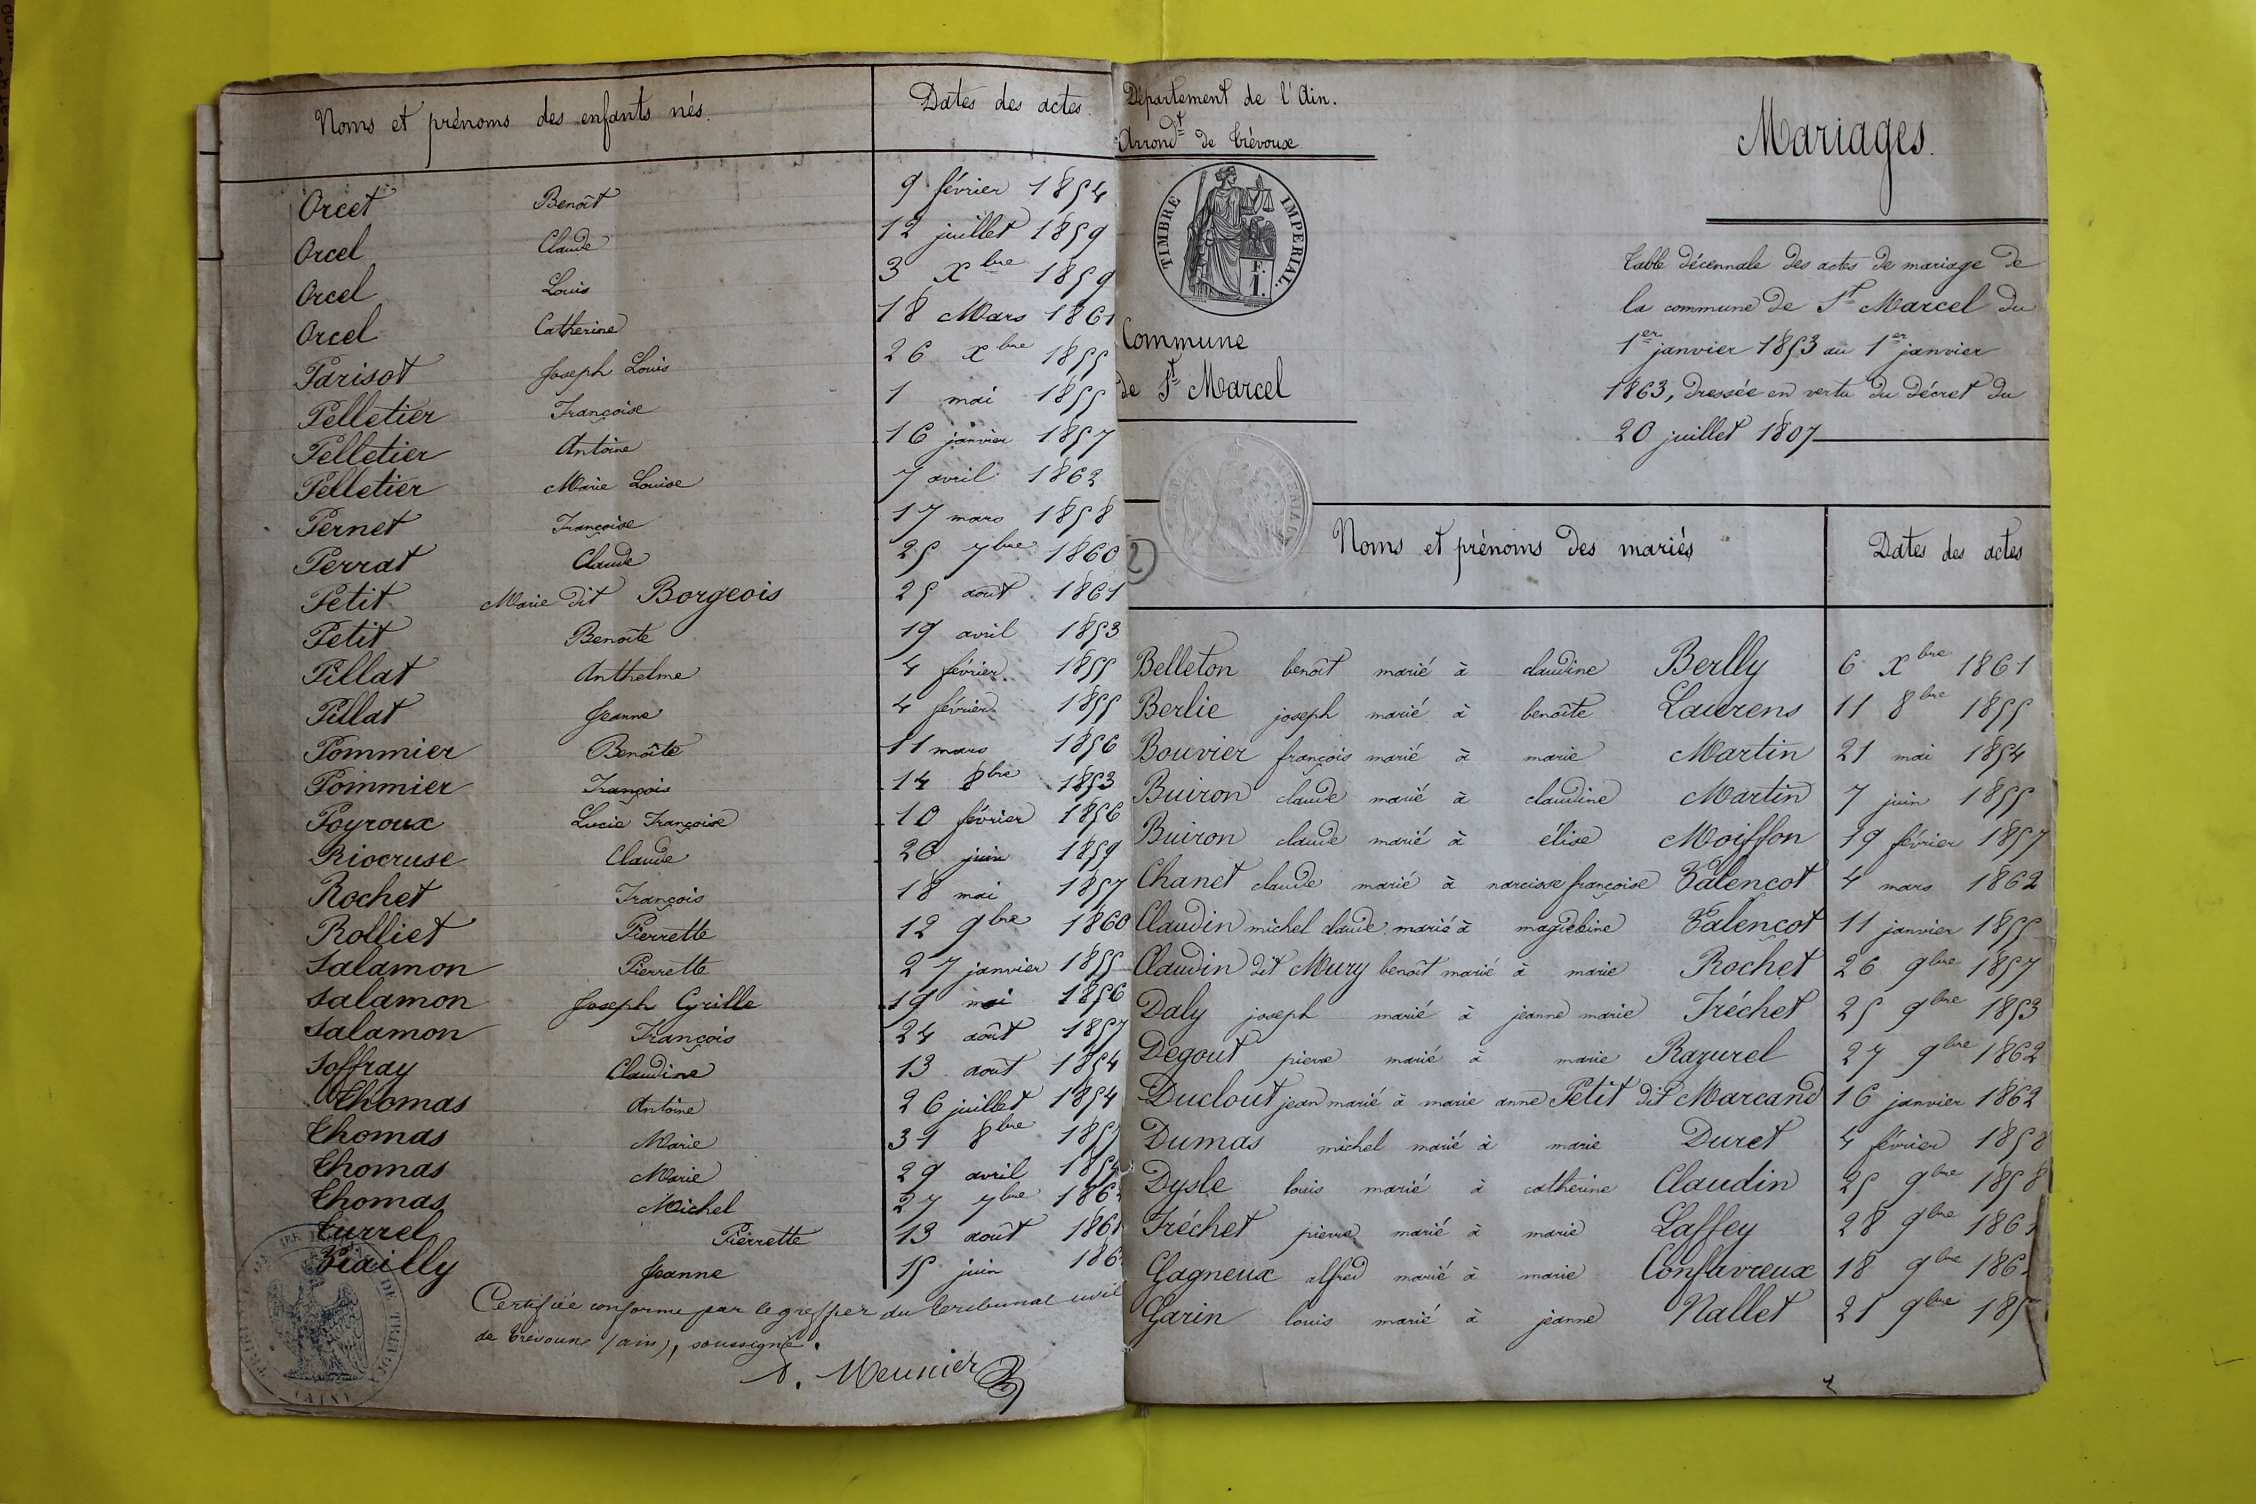 Noms et prénoms des enfants nés. Dates des actes
Orcet Benoît 9 février 1854
Orcel Claude 12 juillet 1859
Orcel Louis 3 Xbre 1859
Orcel Catherine 18 Mars 1861
Parisot Joseph Louis 26 Xbre 1855
Pelletier Françoise 1 mai 1855
Pelletier Antoine 16 janvier 1857
Pelletier Marie Louise 7 avril 1862
Pernet Françoise 17 mars 1858
Perrat Claude 25 7bre 1860
Petit Marie dit Borgeois 25 août 1861
Petit Benoîte 19 avril 1853
Pillat Anthelme 4 février 1855
Pillat Jeanne 4 février 1855
Pommier Benoîte 11 mars 1856
Pommier François 14 8bre 1853
Poyroux Lucie Françoise 10 février 1856
Riocruse Claude 26 juin 1859
Rochet François 18 mai 1857
Rolliet Pierrette 12 9bre 1860
Salamon Pierrette 27 janvier 1855
Salamon Joseph Cyrille 19 mai 1856
Salamon François 24 août 1857
Soffray Claudine 13 août 1854
Thomas Antoine 26 juillet 1854
Thomas Marie 31 8bre
Thomas Marie 29 avril
Thomas Michel 27 7bre
Turrel Pierrette 13 août 1861
Jeanne 15 juin
Certifiée conforme par le greffier du tribunal civil
de Trévoux (ain), soussigné.
Meunier
Département de l'Ain.
Arrondt de Trévoux
TIMBRE IMPERIAL.
Commune
de St Marcel
Mariages.
Table décennale des actes de mariage de
la commune de St Marcel du
1er janvier 1853 au 1er janvier
1863, dressée en vertu du décret du
20 juillet 1807
2
Noms et prénoms des mariés Dates des actes
Belleton benoît marié à claudine Berlly 6 Xbre 1861
Berlie joseph marié à benoîte Laurens 11 8bre 1855
Bouvier françois marié à marie Martin 21 mai 1854
Buiron claude marié à claudine Martin 7 juin 1855
Buiron claude marié à élise Moiffon 19 février 1857
Chanet claude marié à narcisse françoise Valençot 4 mars 1862
Claudin michel claude marié à Valençot 11 janvier 1855
Claudin dit Mury benoît marié à marie Rochet 26 9bre 1857
Daly joseph marié à jeanne marie Fréchet 25 9bre 1853
Degout pierre marié à marie Razurel 27 9bre 1862
Duclout jean marié à marie anne Petit dit Marcand 16 janvier 1862
Dumas michel marié à marie Duret 4 février 1858
Dysle louis marié à catherine Claudin 25 9bre 1858
Fréchet pierre marié à marie Laffey 28 9bre
Gagneux alfred marié à marie Confavreux 18 9bre
Garin louis marié à jeanne Nallet 21 9bre